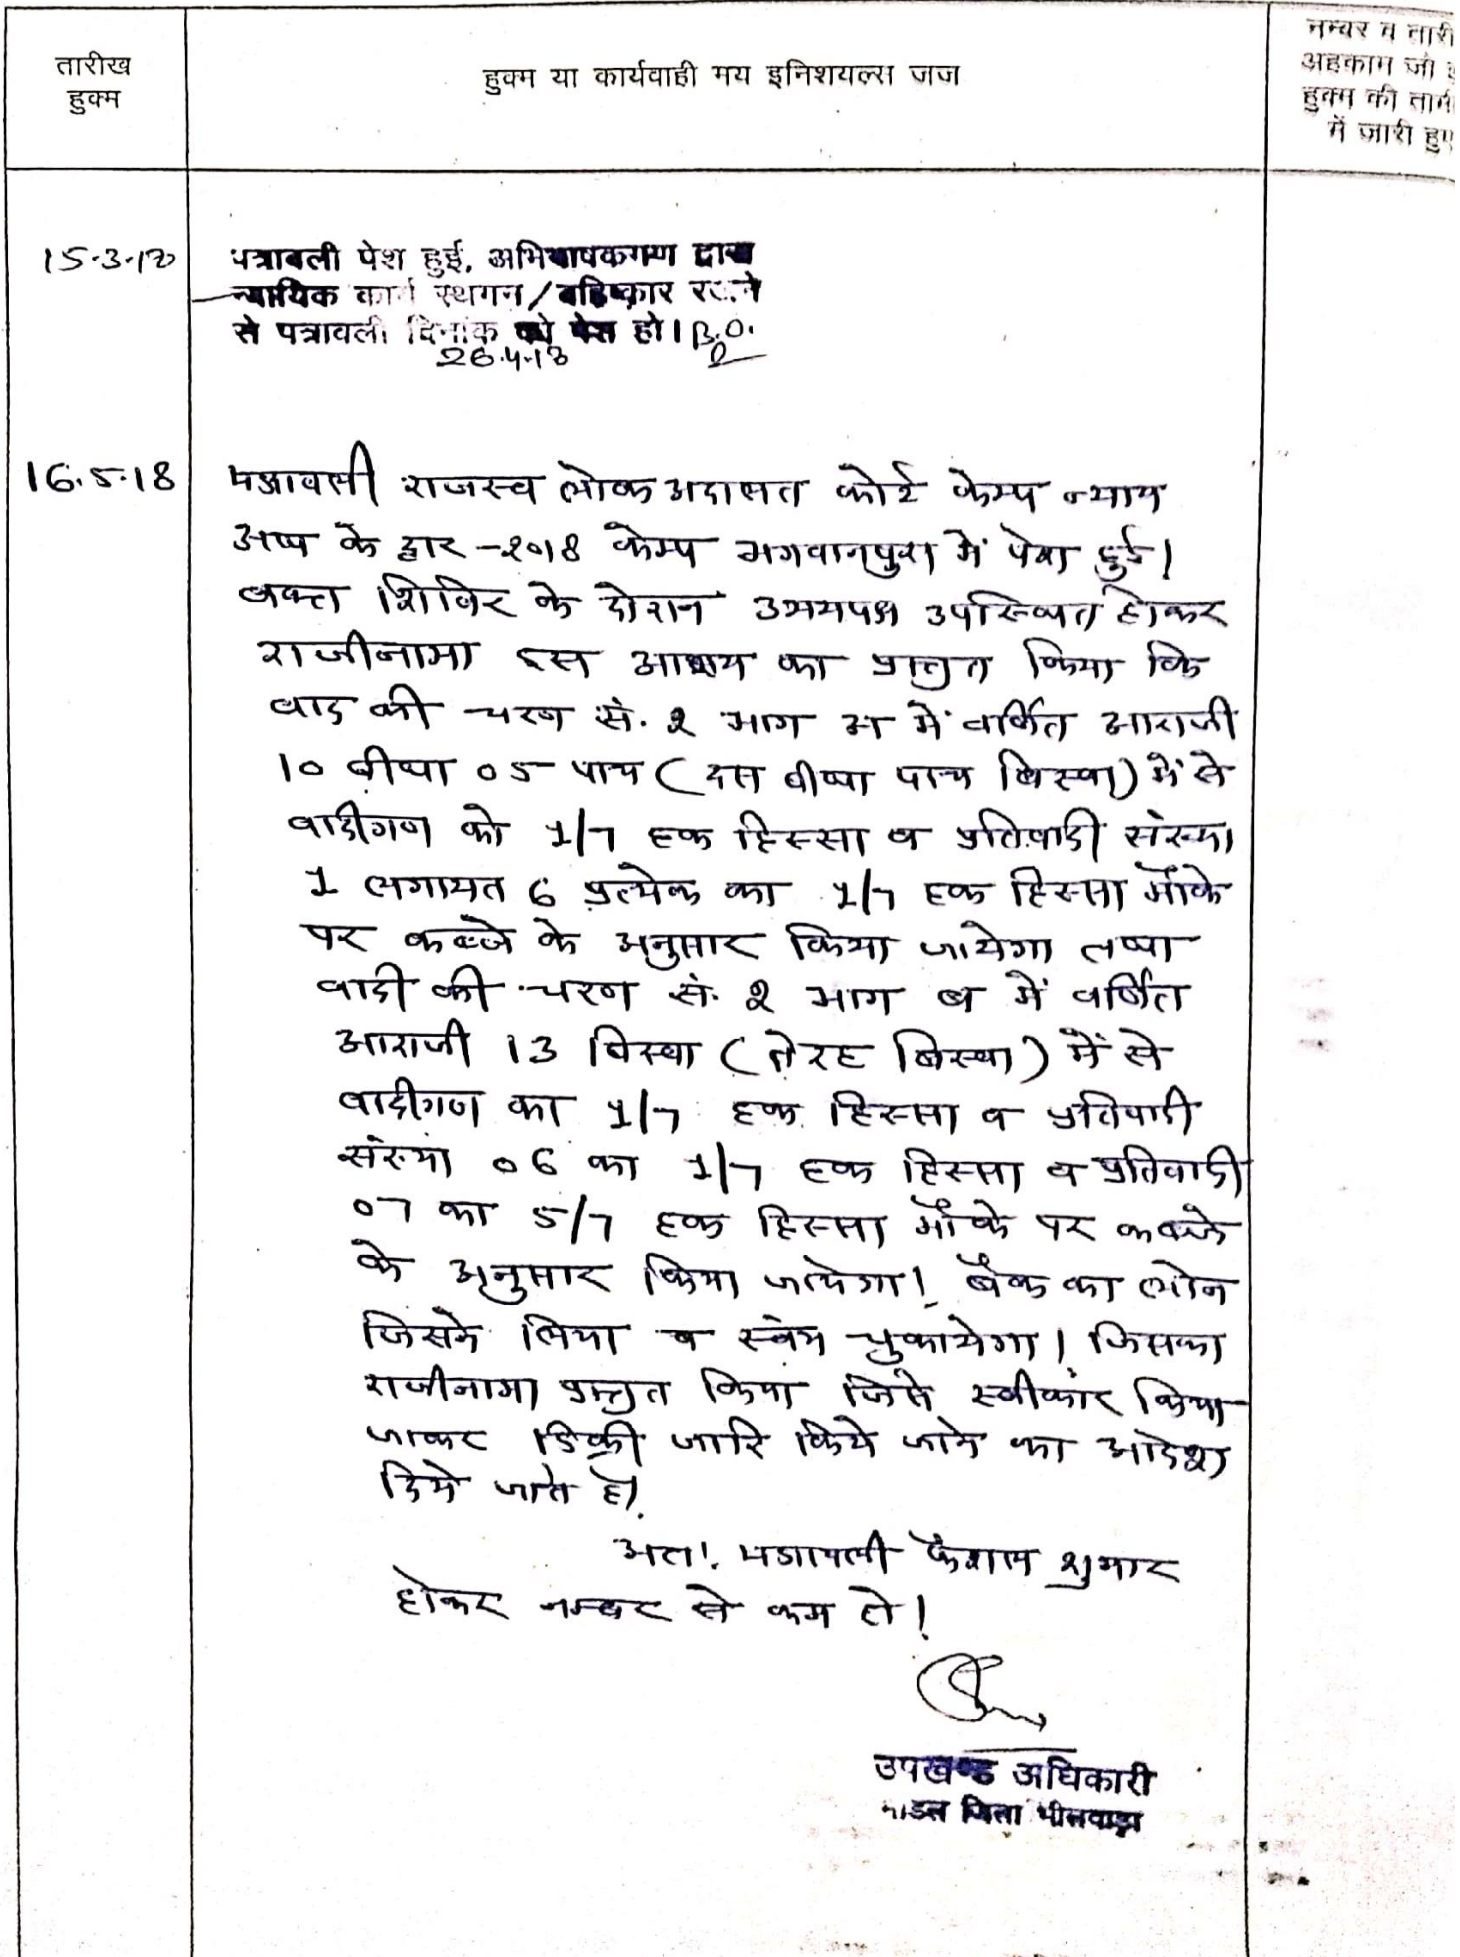 तारीख
हुक्म
हुक्म या कार्यवाही मय इनिशयल्स जज
नम्बर व तारी
अहकाम जो इ
हुक्म की तामी
में जारी हुए
पत्रावली पेश हुई, अभिभाषकगण द्वारा
न्यायिक कार्य स्थगन/बहिष्कार रखने
से पत्रावली दिनांक को पेश हो। B.O.
16.5.18
पत्रावली राजस्व लोक अदालत कोर्ट केम्प न्याय
आप के द्वार -2018 केम्प भगवानपुरा में पेश हुई।
वक्त शिविर के दोरान उभयपक्ष उपस्थित होकर
राजीनामा इस आशय का प्रस्तुत किया कि
वाद की चरण सं. 2 भाग अ में वर्णित आराजी
10 बीघा 05 पाच (दस बीघा पाच बिस्वा) में से
वादीगण को 1/7 हक हिस्सा व प्रतिवादी संख्या
1 लगायत 6 प्रत्येक का 1/7 हक हिस्सा मौके
पर कब्जे के अनुसार किया जायेगा तथा
वादी की चरण सं. 2 भाग ब में वर्णित
आराजी 13 बिस्वा (तेरह बिस्वा) में से
वादीगण का 1/7 हक हिस्सा व प्रतिवादी
संख्या 06 का 1/7 हक हिस्सा व प्रतिवादी
07 का 5/7 हक हिस्सा मौके पर कब्जे
के अनुसार किया जायेगा। बैंक का लोन
जिसने लिया व स्वंय चुकायेगा। जिसका
राजीनामा प्रस्तुत किया जिसे स्वीकार किया
जाकर डिक्री जारि किये जाने का आदेश
दिये जाते है।
अतः पत्रावली फैशल शुमार
होकर नम्बर से कम हो।
उपखण्ड अधिकारी
माडल जिला भीलवाड़ा